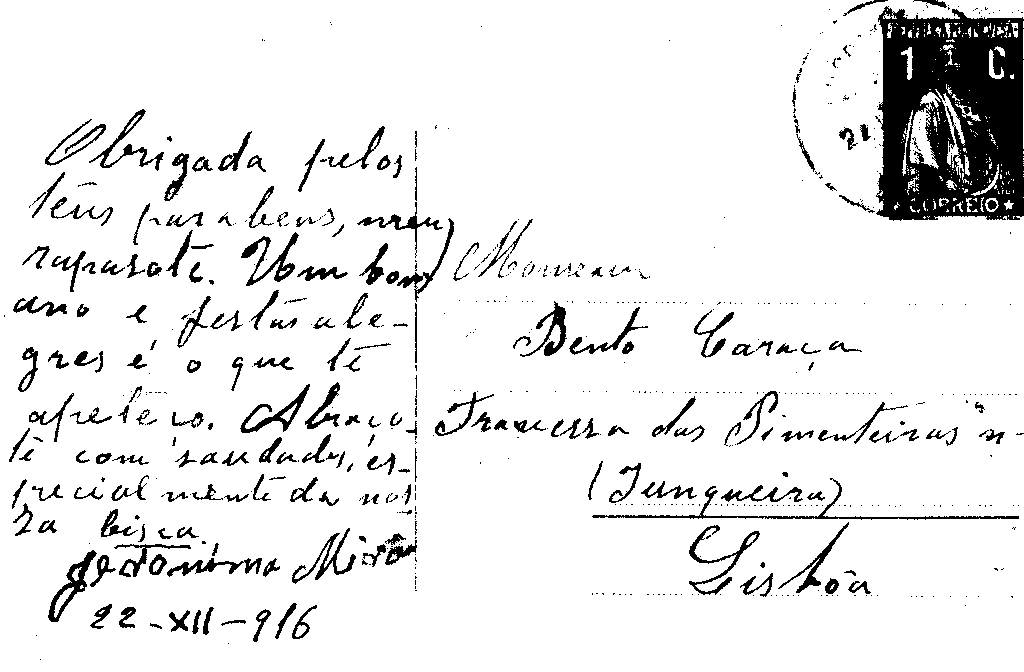 Obrigada pelos
teus parabens, meu
rapasote. Um bom
ano e festas ale-
gres é o que te
apeteço. Abraço-
te com saudades, es-
pecialmente da nos
sa bisca
Jeronima
22-XII-916
REPUBLICA PORTUGUESA
1 C.
CORREIO
22
Monsieur
Bento Caraça
Travessa das Pimenteiras nº
(Junqueira)
Lisbôa